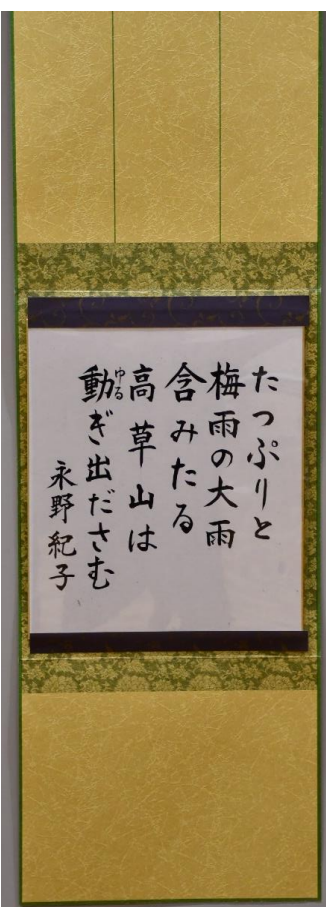 たっぷりと
梅雨の大雨
含みたる
高草山は
動ゆるぎ出ださむ
永野紀子